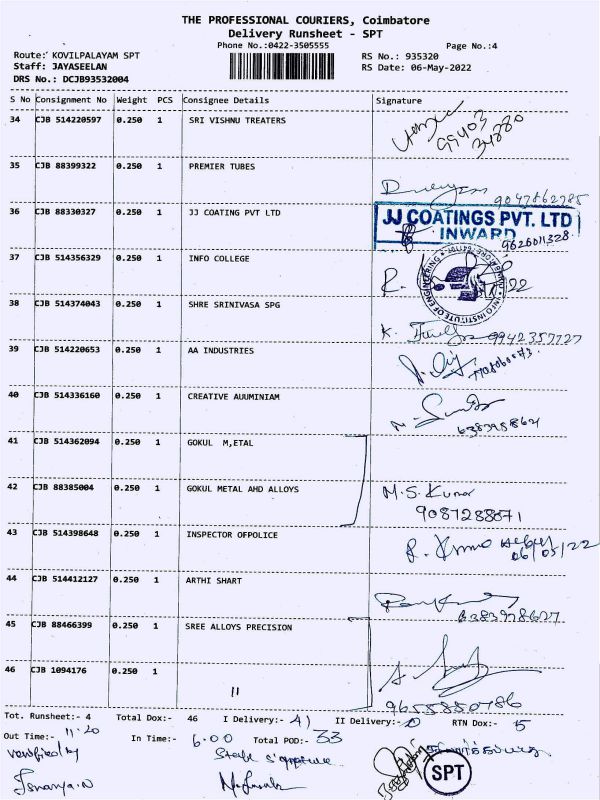 THE PROFESSIONAL COURIERS, Coimbatore
Delivery Runsheet - SPT
Phone No.:0422-3505555
Page No.:4
Route:' KOVILPALAYAM SPT
RS No.: 935320
Staff: JAYASEELAN
RS Date: 06-May-2022
DRS No.: DCJB93532004
S No Consignment No Weight PCS Consignee Details Signature
34 CJB 514220597 0.250 1 SRI VISHNU TREATERS
99403
34880
35 CJB 88399322 0.250 1 PREMIER TUBES
9047862785
36 CJB 88330327 0.250 1 JJ COATING PVT LTD
JJ COATINGS PVT. LTD
INWARD
9626011328
37 CJB 514356329 0.250 1 INFO COLLEGE
INFO INSTITUTE OF ENGINEERING
38 CJB 514374043 0.250 1 SHRE SRINIVASA SPG
9942357727
39 CJB 514220653 0.250 1 AA INDUSTRIES
40 CJB 514336160 0.250 1 CREATIVE AUUMINIAM
41 CJB 514362094 0.250 1 GOKUL M,ETAL
42 CJB 88385004 0.250 1 GOKUL METAL AHD ALLOYS
M.S. Kumar
9087288871
43 CJB 514398648 0.250 1 INSPECTOR OFPOLICE
06/05/22
44 CJB 514412127 0.250 1 ARTHI SHART
6383978627
45 CJB 88466399 0.250 1 SREE ALLOYS PRECISION
46 CJB 1094176 0.250 1 11
9655850786
Tot. Runsheet:- 4 Total Dox:- 46 I Delivery:- 41 II Delivery:- 0 RTN Dox:- 5
Out Time:- 11.20 In Time:- 6.00 Total POD:- 33
verified by
SPT